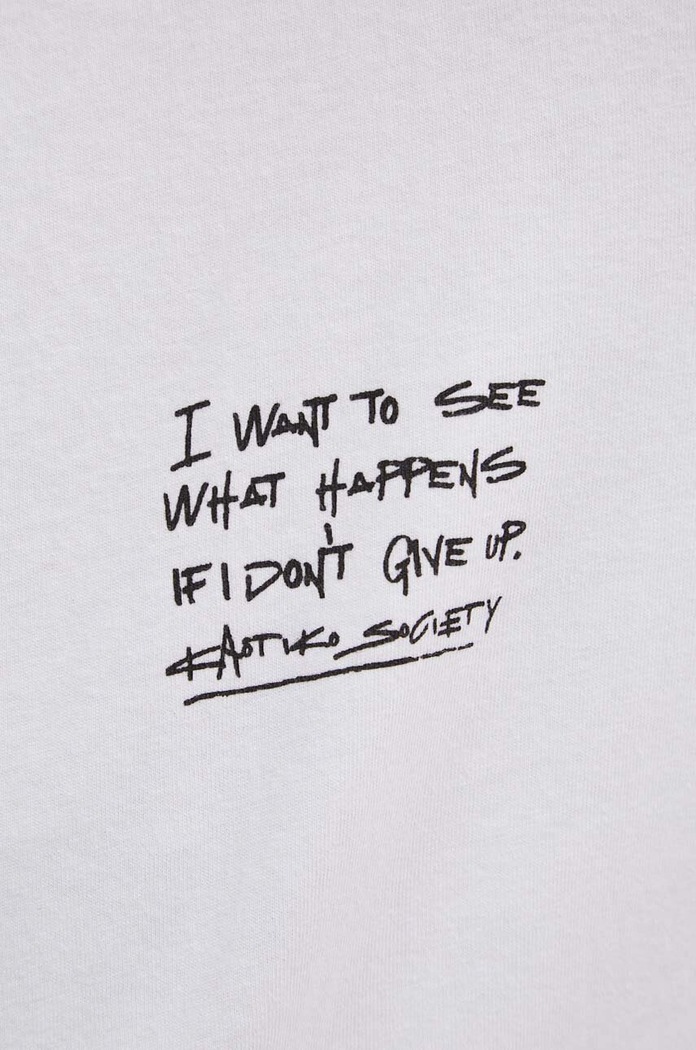 I WANT TO SEE
WHAT HAPPENS
IF I DON'T GIVE UP.
KAOTIKO SOCIETY